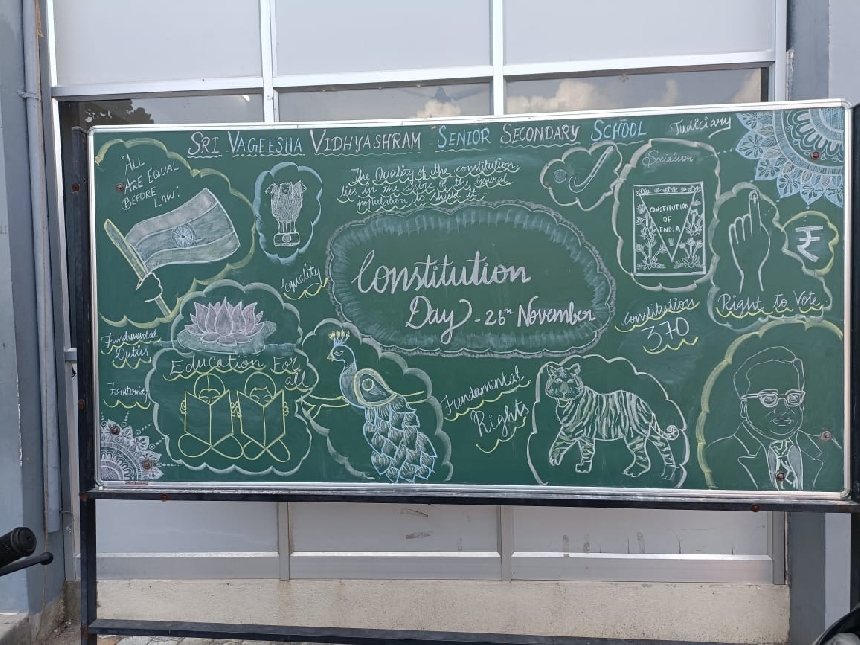 SRI VAGEESHA VIDHYASHRAM SENIOR SECONDARY SCHOOL
Judiciary
ALL
ARE EQUAL
BEFORE LAW!
The Quality of the constitution
lies in the
Socialism
CONSTITUTION
OF
INDIA
Equality
Constitution
Day - 26th November
Right to Vote
₹
Constitution
370
Fundamental
Duties
Education For
all
Fundamental
Rights